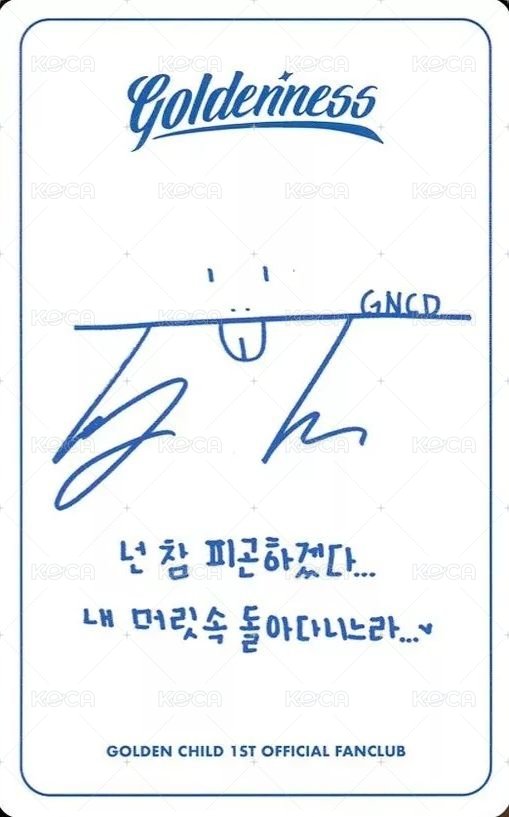 Goldenness
GNCD
넌 참 피곤하겠다...
내 머릿속 돌아다니느라...
GOLDEN CHILD 1ST OFFICIAL FANCLUB